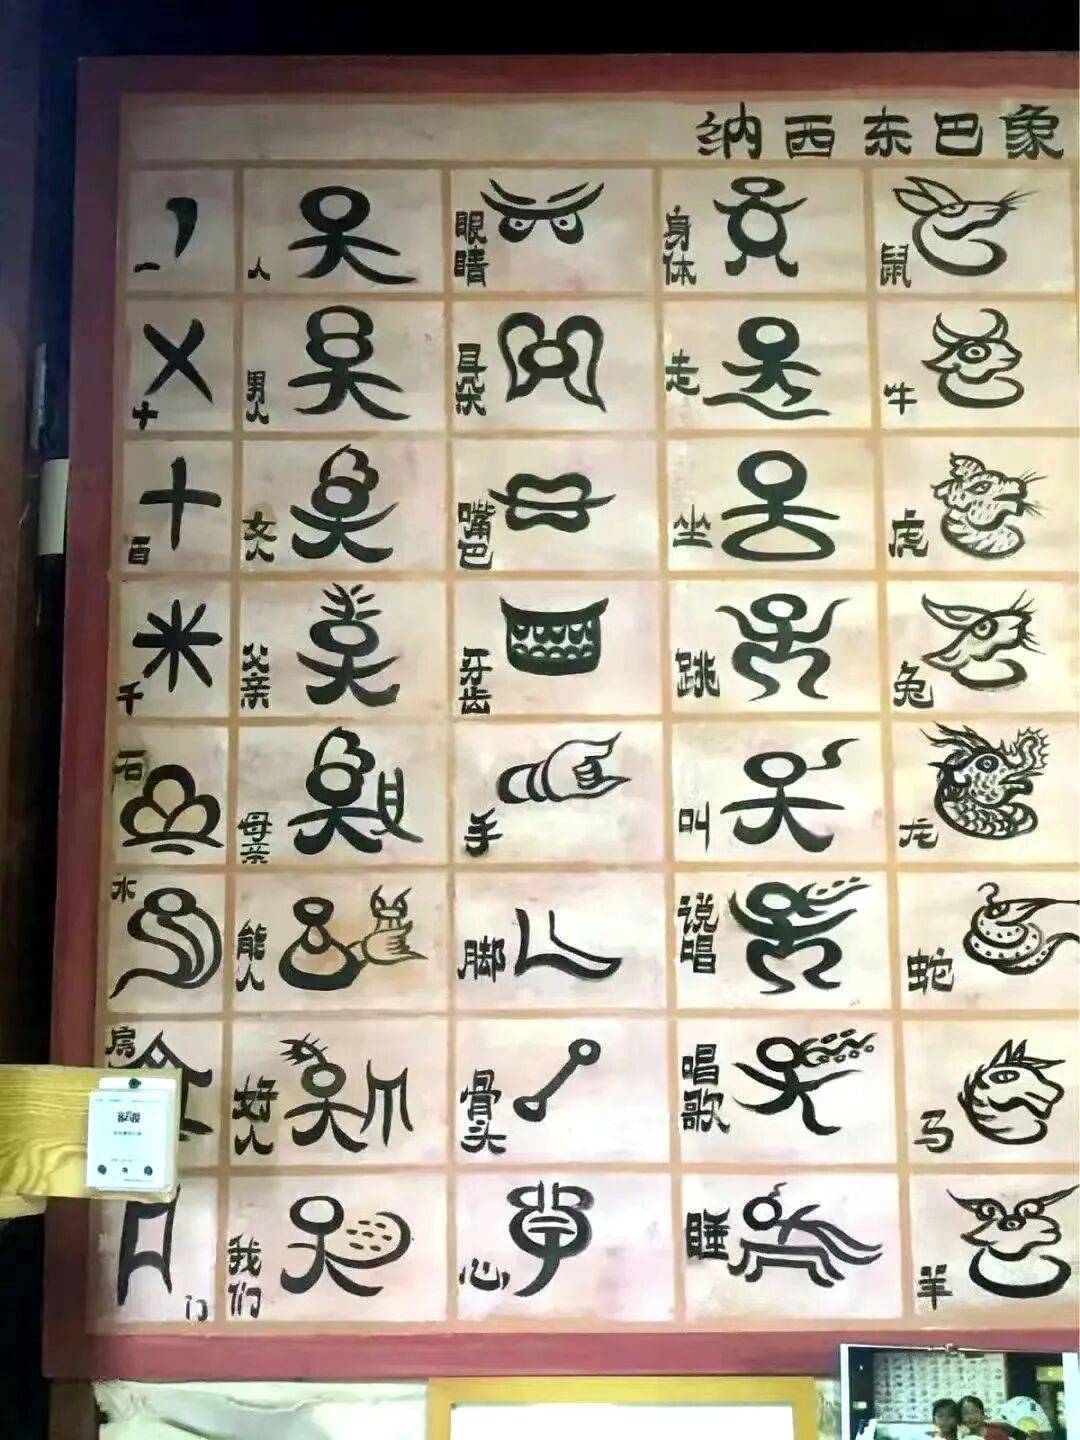 纳西东巴象
一
人
眼睛
身体
鼠
十
男人
耳朵
走
牛
百
女人
嘴巴
坐
虎
千
父亲
牙齿
跳
兔
石
母亲
手
叫
龙
水
能人
脚
说唱
蛇
房
好人
骨头
唱歌
马
门
我们
心
睡
羊